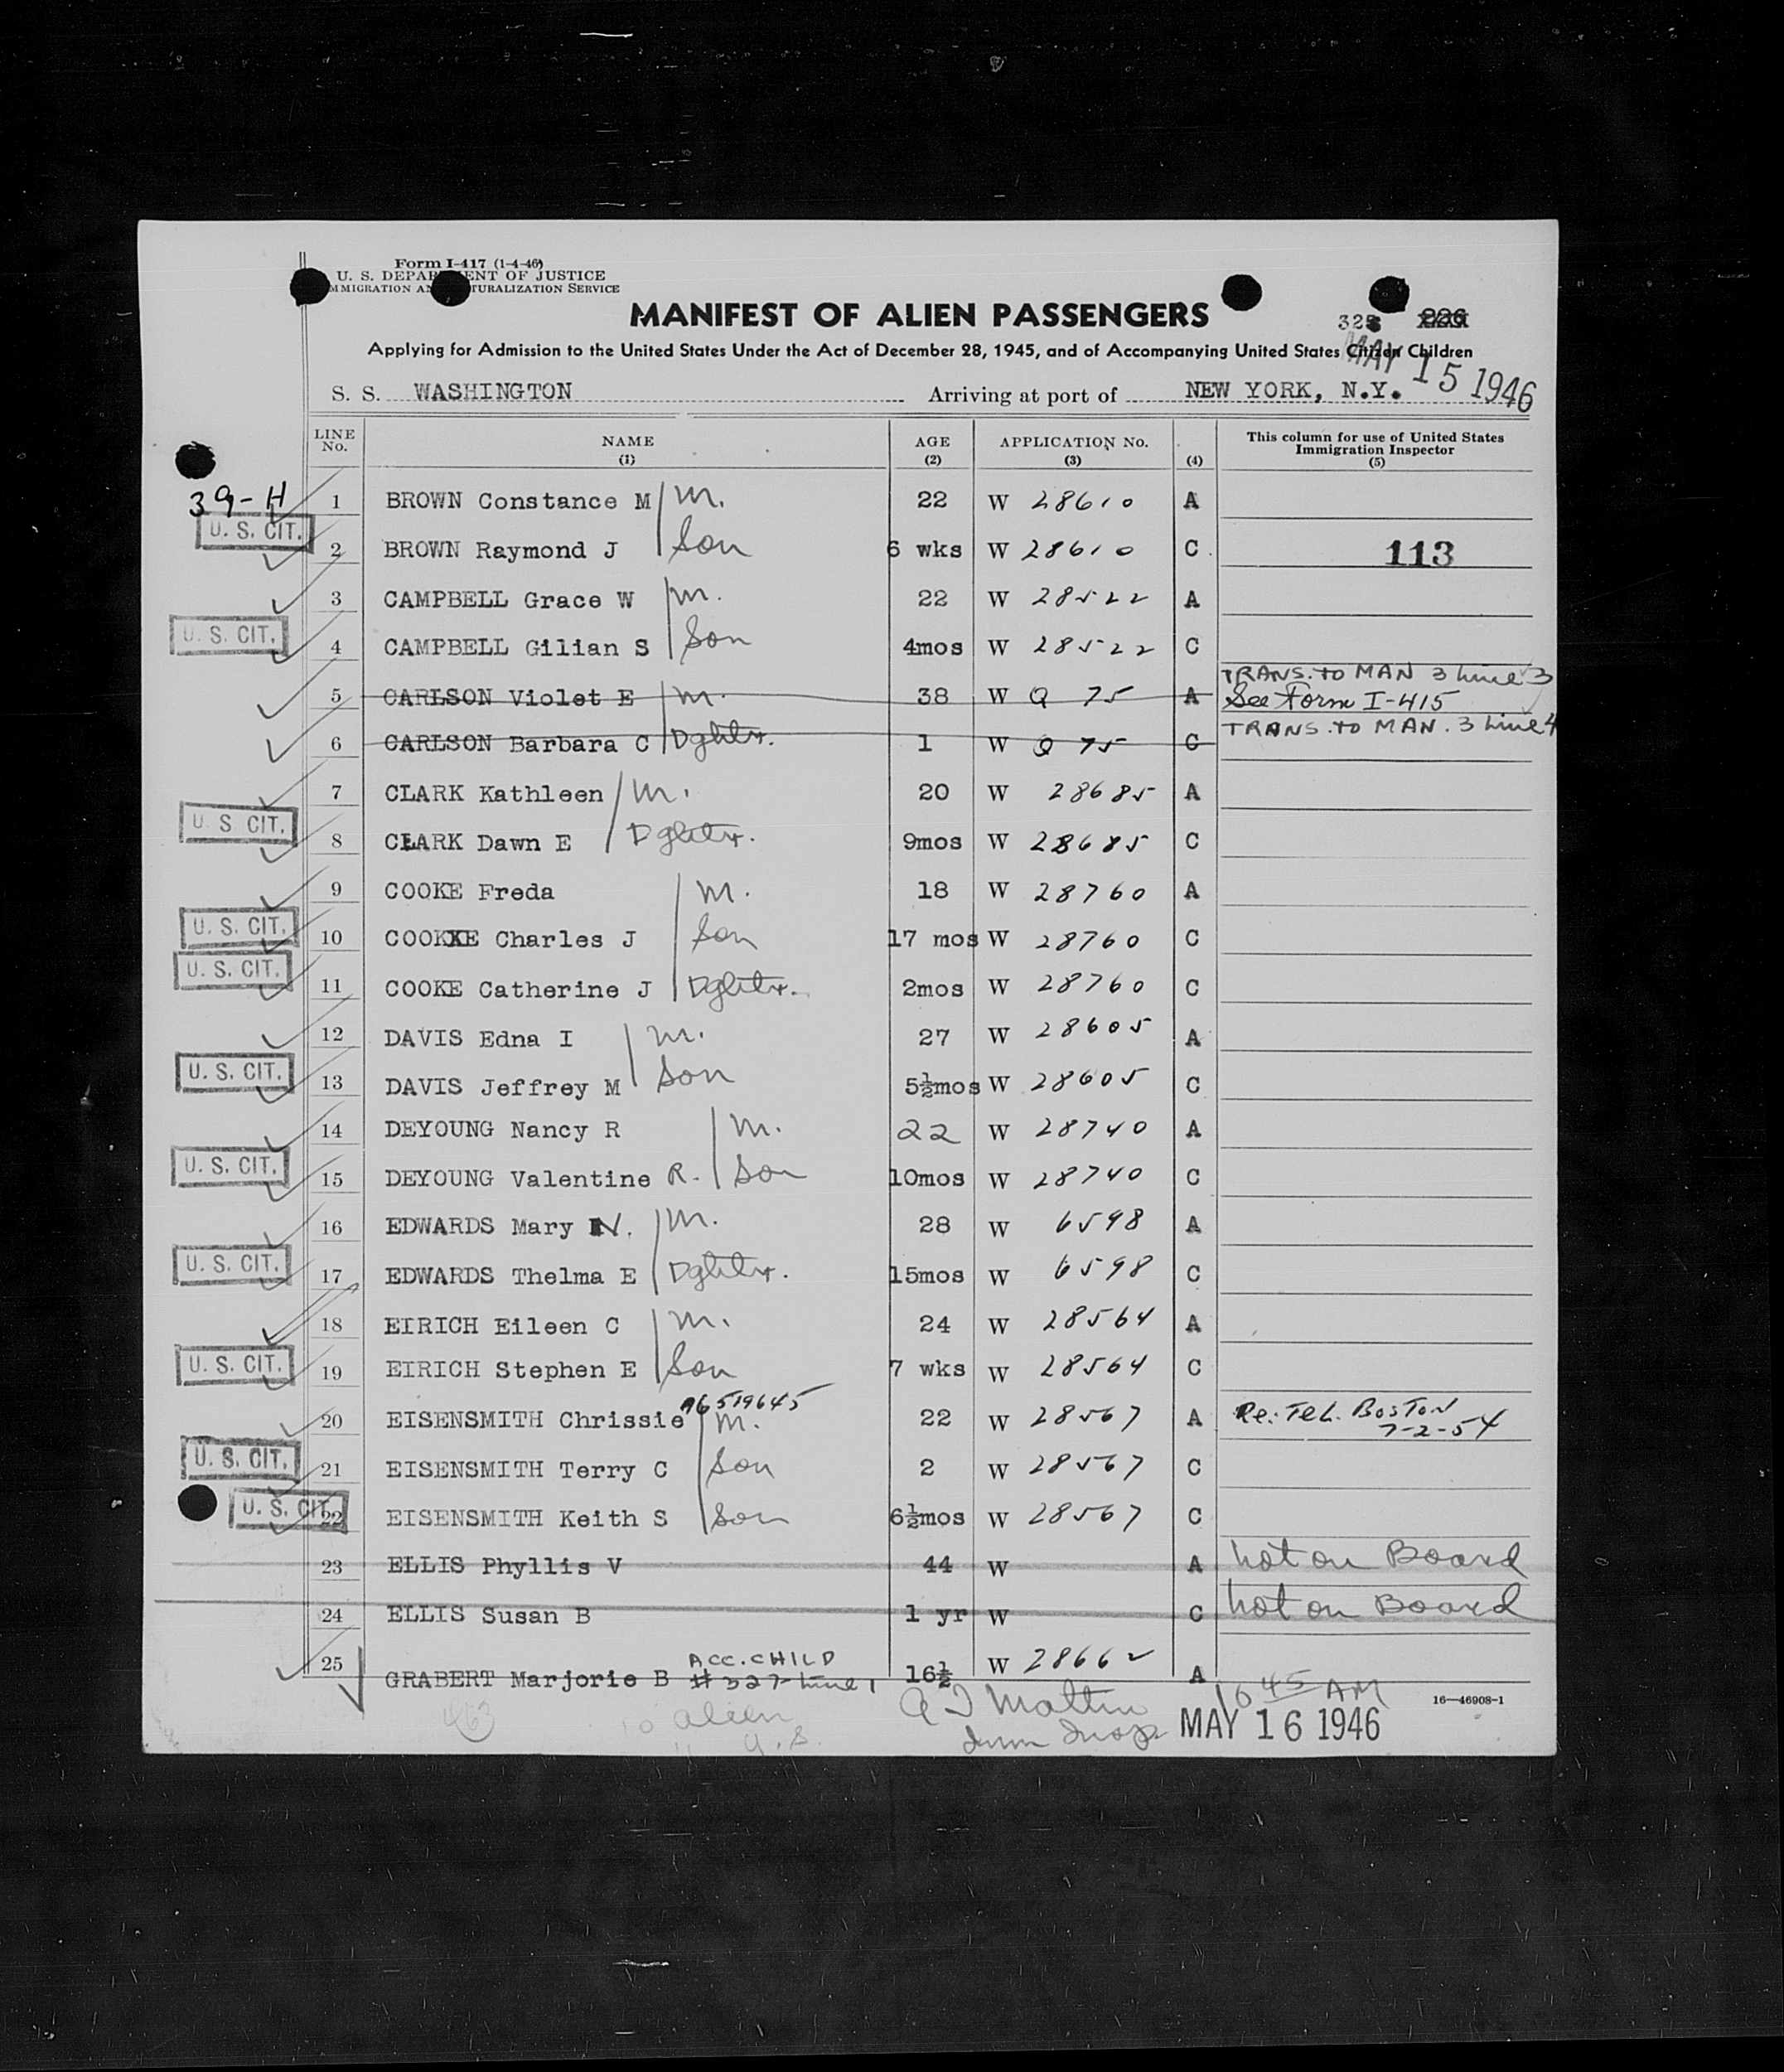 Form I-417 (1-4-46)
U. S. DEPARTMENT OF JUSTICE
IMMIGRATION AND NATURALIZATION SERVICE
MANIFEST OF ALIEN PASSENGERS
226
Applying for Admission to the United States Under the Act of December 28, 1945, and of Accompanying United States Citizen Children
MAY 15 1946
S. S. WASHINGTON Arriving at port of NEW YORK, N.Y.
LINE No. NAME (1) AGE (2) APPLICATION No. (3) (4) This column for use of United States Immigration Inspector (5)
39-H 1 BROWN Constance M m. 22 W 28610 A
U. S. CIT. 2 BROWN Raymond J Son 6 wks W 28610 C 113
3 CAMPBELL Grace W m. 22 W 28522 A
U. S. CIT. 4 CAMPBELL Gilian S Son 4mos W 28522 C
TRANS. TO MAN 3 Line 3
5 CARLSON Violet E m. 38 W Q 75 A See Form I-415
6 CARLSON Barbara C Dghtr. 1 W Q 75 C TRANS. TO MAN. 3 Line 4
7 CLARK Kathleen m. 20 W 28685 A
U. S. CIT. 8 CLARK Dawn E Dghtr. 9mos W 28685 C
9 COOKE Freda m. 18 W 28760 A
U. S. CIT. 10 COOKXE Charles J Son 17 mos W 28760 C
U. S. CIT. 11 COOKE Catherine J Dghtr. 2mos W 28760 C
12 DAVIS Edna I m. 27 W 28605 A
U. S. CIT. 13 DAVIS Jeffrey M Son 5½mos W 28605 C
14 DEYOUNG Nancy R m. 22 W 28740 A
U. S. CIT. 15 DEYOUNG Valentine R. Son 10mos W 28740 C
16 EDWARDS Mary N. m. 28 W 6598 A
U. S. CIT. 17 EDWARDS Thelma E Dghtr. 15mos W 6598 C
18 EIRICH Eileen C m. 24 W 28564 A
U. S. CIT. 19 EIRICH Stephen E Son 7 wks W 28564 C
A6519645
20 EISENSMITH Chrissie m. 22 W 28567 A Re: Tel. BOSTON 7-2-54
U. S. CIT. 21 EISENSMITH Terry C Son 2 W 28567 C
U. S. CIT. 22 EISENSMITH Keith S Son 6½mos W 28567 C
23 ELLIS Phyllis V 44 W A not on Board
24 ELLIS Susan B 1 yr W C not on Board
ACC. CHILD
25 GRABERT Marjorie B #327 Line 1 16½ W 28662 A
10 45 AM
16—46908-1
10 alien
MAY 16 1946